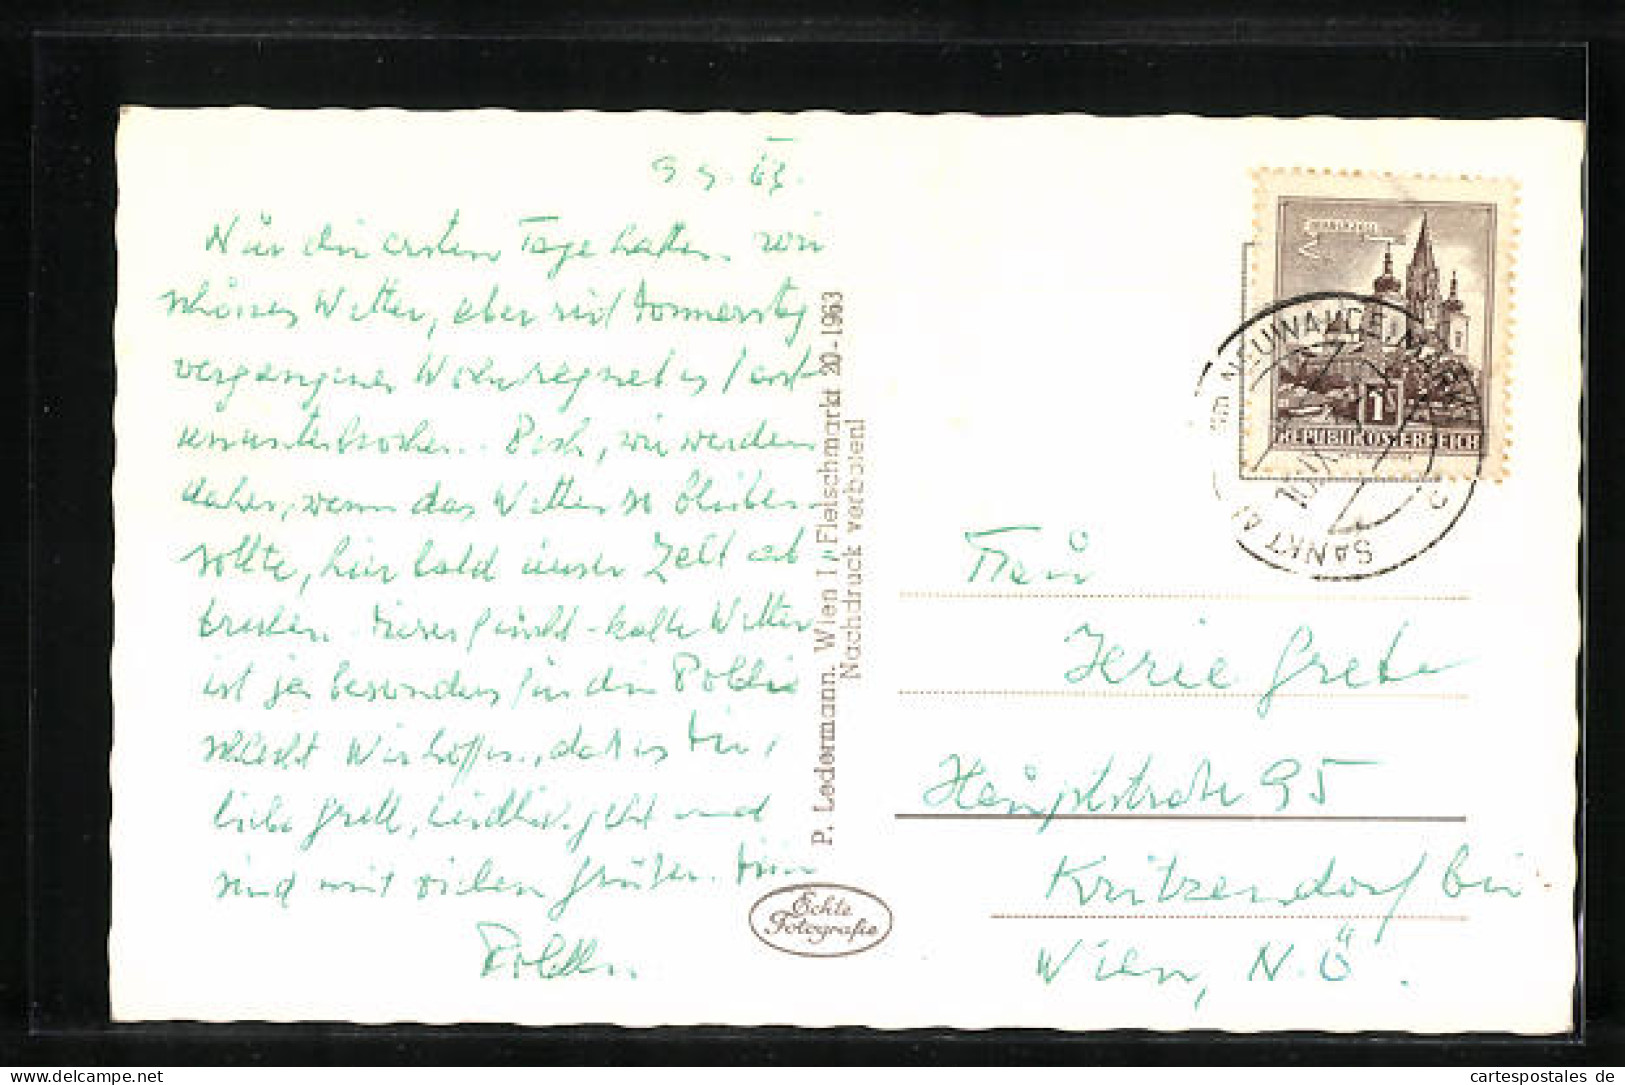 9 9. 63.
Nur die ersten Tage hatten wir
schönes Wetter, aber seit Donnerstag
vergangener Woche regnet es fast
ununterbrochen. Pech, wir werden
daher, wenn das Wetter so bleiben
sollte, hier bald unser Zelt ab
brechen. Dieses feucht-kalte Wetter
ist ja besonders für die Poldi
schlecht. Wir hoffen, daß es Dir,
liebe Gretl, leidlich geht und
sind mit vielen Grüßen. Deine
Poldi.
P. Ledermann. Wien I, Fleischmarkt 20-1963
Nachdruck verboten!
Echte
Fotografie
MARIAZELL
1S
REPUBLIK ÖSTERREICH
SANKT
am NEUWALDEGG
10. IX
Frau
Grete
Hauptstraße 95
Kritzendorf bei
Wien, N.Ö.
cartespostales de